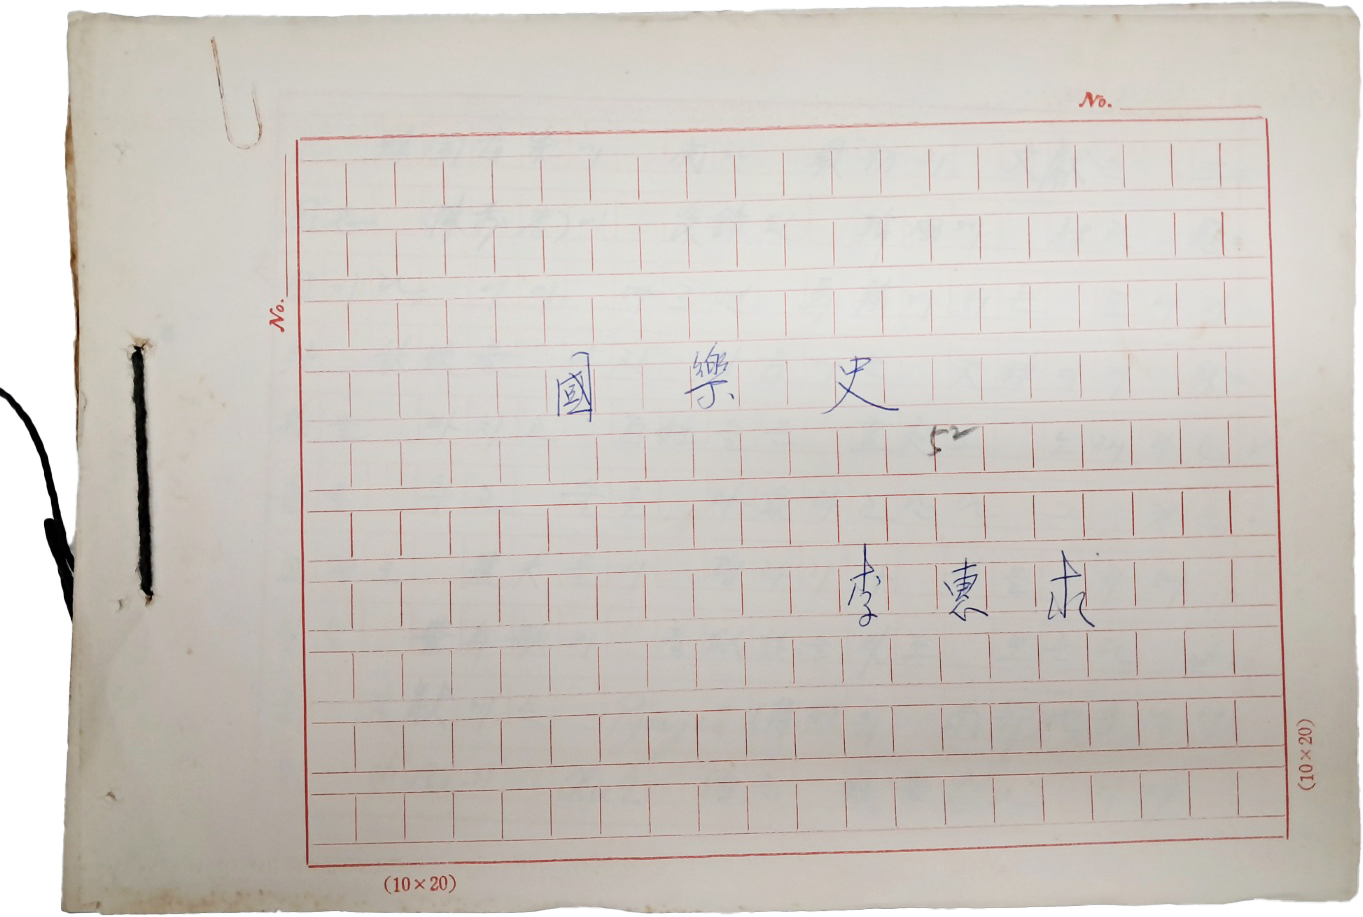 No.
No.
國樂史
52
李惠求
(10×20)
(10×20)